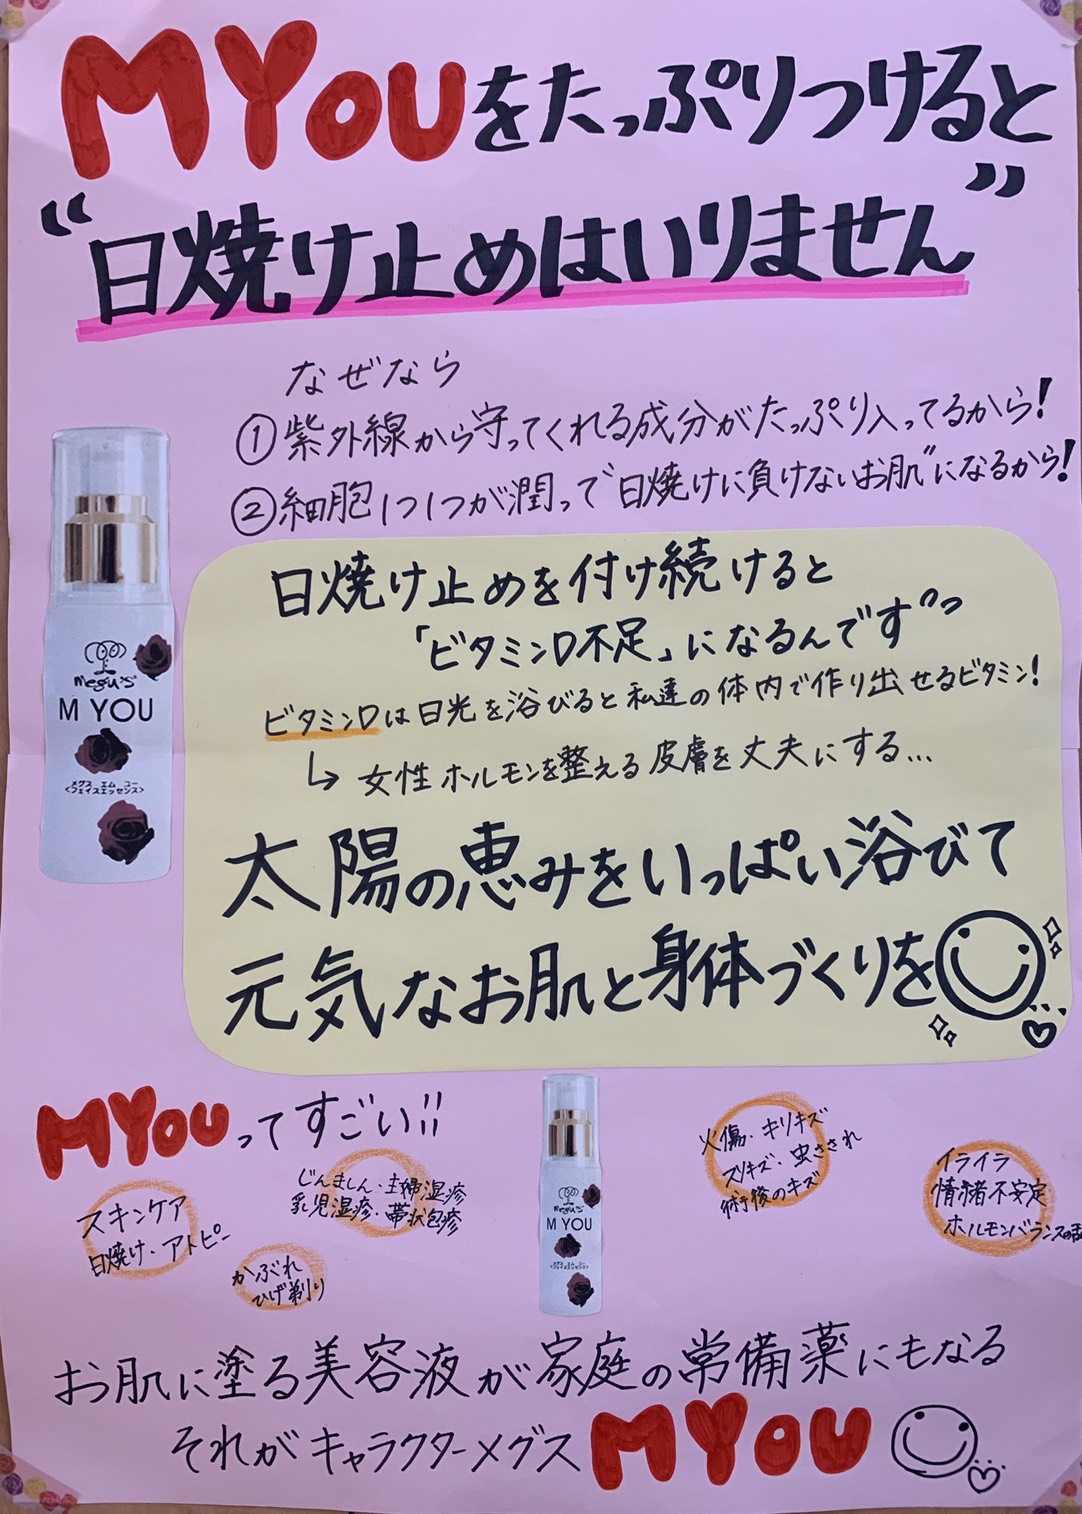 MYOUをたっぷりつけると
“日焼け止めはいりません”
なぜなら
①紫外線から守ってくれる成分がたっぷり入ってるから!
②細胞1つ1つが潤って“日焼けに負けないお肌”になるから!
日焼け止めを付け続けると
「ビタミンD不足」になるんです
ビタミンDは日光を浴びると私達の体内で作り出せるビタミン!
↳女性ホルモンを整える皮膚を丈夫にする…
太陽の恵みをいっぱい浴びて
元気なお肌と身体づくりを
megu's
M YOU
メグス エム ユー
<フェイスエッセンス>
MYOUってすごい!!
スキンケア
日焼け・アトピー
じんましん・主婦湿疹
乳児湿疹・帯状包疹
かぶれ
ひげ剃り
megu's
M YOU
メグス エム ユー
<フェイスエッセンス>
火傷・キリキズ
スリキズ・虫さされ
術後のキズ
イライラ
情緒不安定
ホルモンバランスの
お肌に塗る美容液が家庭の常備薬にもなる
それがキャラクターメグスMYOU